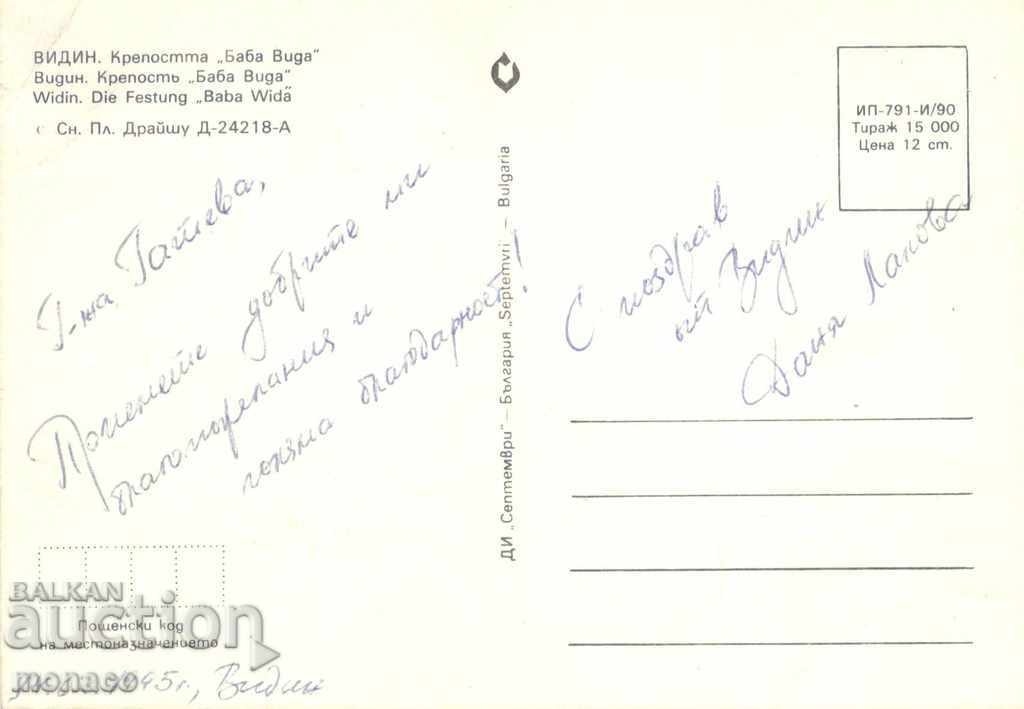 ВИДИН. Крепостта „Баба Вида“
Видин. Крепость „Баба Вида“
Widin. Die Festung „Baba Wida“
Сн. Пл. Драйшу Д-24218-А
ИП-791-И/90
Тираж 15 000
Цена 12 ст.
Г-жа Гатева,
Приемете добрите ми
благопожелания и
голяма благодарност!
ДИ „Септември“ — България „Septemvri — Bulgaria
С поздрав
от Видин
Даня
Пощенски код
на местоназначението
BALKAN
auction
monaco
95г., Видин